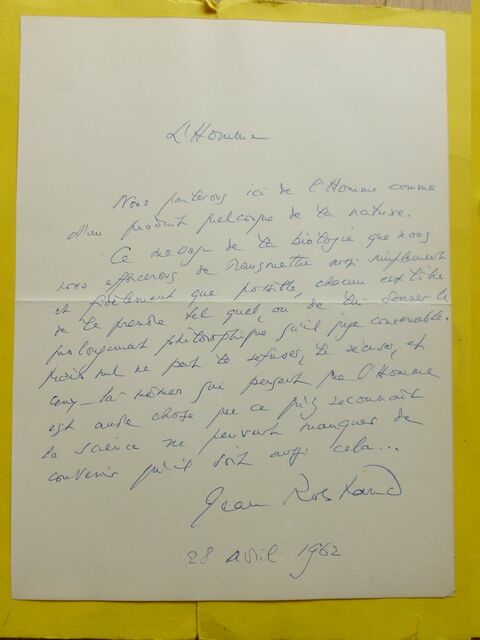 L'Homme
Nous parlerons ici de l'Homme comme
d'un produit quelconque de la nature.
Ce message de la biologie que nous
nous efforcerons de transmettre aussi simplement
et fidèlement que possible, chacun est libre
de le prendre tel quel, ou de lui donner le
prolongement philosophique qu'il juge convenable.
Mais nul ne peut le refuser, le récuser, et
ceux-là mêmes qui pensent que l'Homme
est autre chose que ce qu'y reconnaît
la science ne peuvent manquer de
convenir qu'il soit aussi cela...
Jean Rostand
28 avril 1962